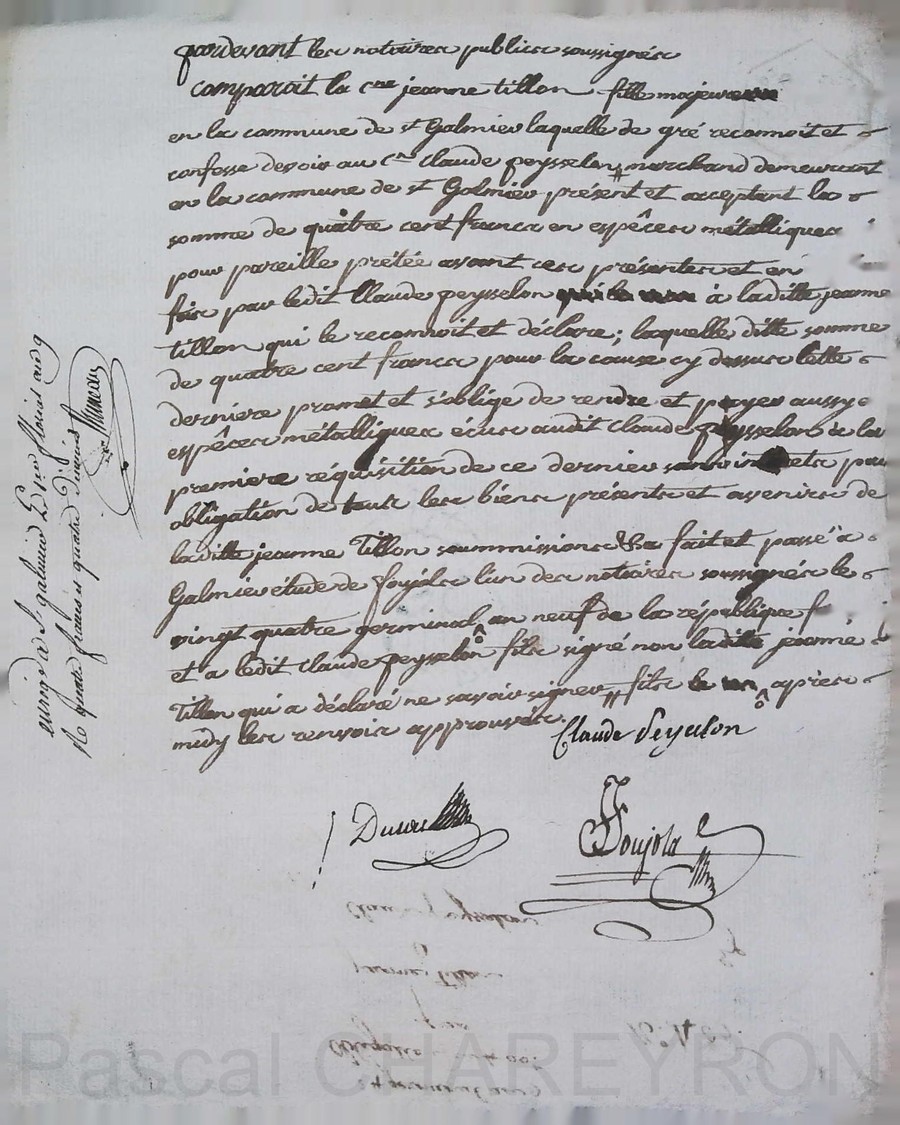 pardevant les notaires publics soussignés
comparait la cne jeanne tillon fille majeure
en la commune de st Galmier laquelle de gré reconnoit et
confesse devoir au Cn Claude peysselon, marchand demeurant
en la commune de st Galmier présent et acceptant la
somme de quatre cent francs en espêces métalliques
pour pareille prétée avant ces présentes et en
fois par ledit Claude peysselon à laditte jeanne
tillon qui le reconnoit et déclare; laquelle ditte somme
de quatre cent francs pour la cause cy dessus cette
derniere promet et s'oblige de rendre et payer aussy
espêces métalliques audit Claude peysselon a la
premiere réquisition de ce dernier pour
obligation de tous les biens présents et avenirs de
laditte jeanne Tillon soummissions &a fait et passé a
Galmier étude de foujols l'un des notaires soussignés le
vingt quatre germinal an neuf de la république f
et a ledit Claude peysselon fils signé non laditte jeanne
Tillon qui a déclaré ne savoir signer fils apres
midy les renvois approuvés.
Claude Peyselon
Foujols
enregé à St galmier le floréal an 9
R quatre francs et quatre decimes
Claude peysselon
à
jeanne tillon
Obligation
germinal an 9
Pascal CHAREYRON